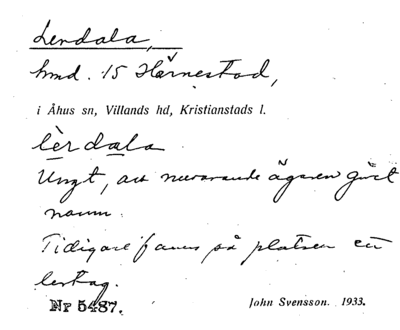 Lerdala,
hmd. 15 Härnestad,
i Åhus sn, Villands hd, Kristianstads l.
lèrdala
Ungt, av nuvarande ägaren givet
namn.
Tidigare fanns på platsen en
lertag.
Nr 5487.
John Svensson. 1933.